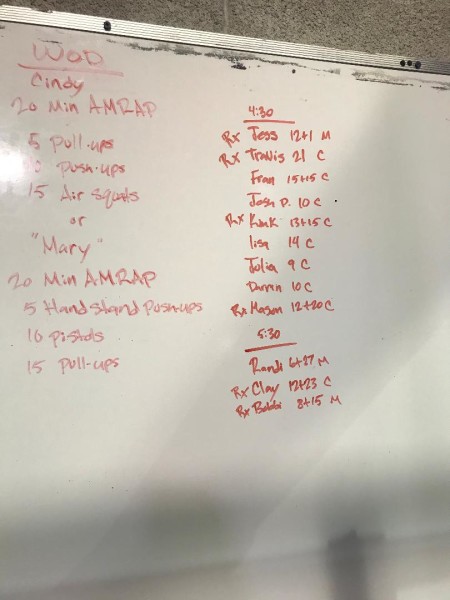 WOD
Cindy
20 Min AMRAP
5 Pull-ups
10 Push-ups
15 Air Squats
or
"Mary"
20 Min AMRAP
5 Handstand Push-ups
10 Pistols
15 Pull-ups
4:30
Rx Jess 12+1 M
Rx Travis 21 C
Fran 15+15 C
Josh D. 10 C
Rx 13+15 C
lisa 14 C
Julia 9 C
Darrin 10 C
Rx Mason 12+20 C
5:30
Randi 6+27 M
Rx Clay 12+23 C
Rx Bobbi 8+15 M